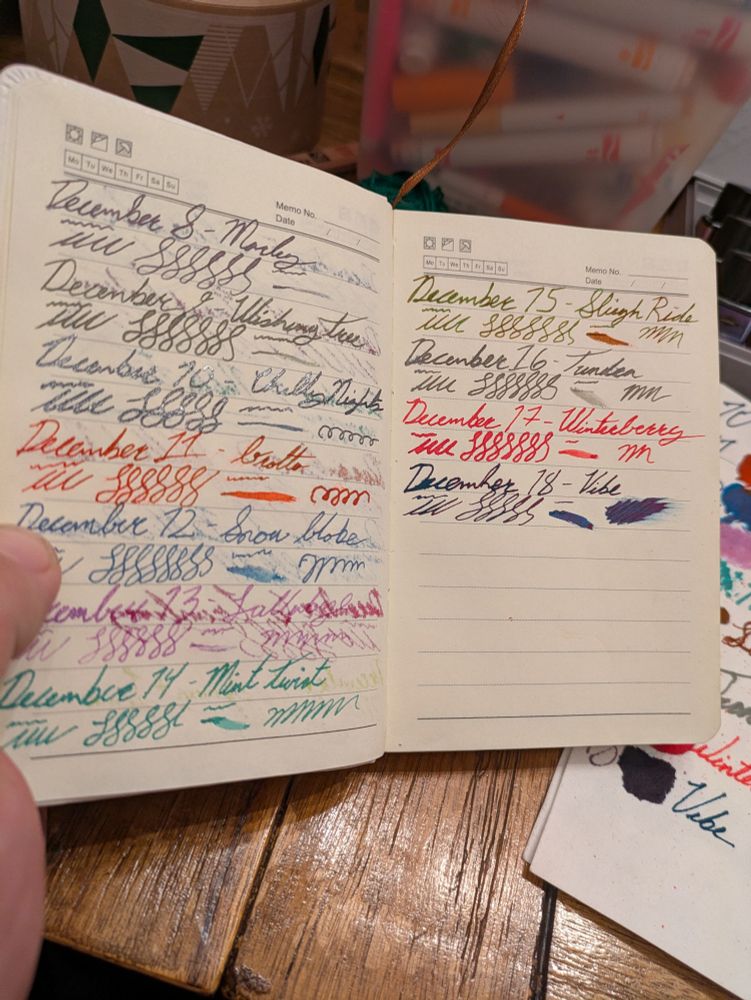 Mo Tu We Th Fr Sa Su
Memo No.
Date / /
December 8 - Marley
December 9 - Wishing Tree
December 10 - Chilly Nights
December 11 - brotto
December 12 - Snow globe
December 13 -
December 14 - Mint twist
Mo Tu We Th Fr Sa Su
Memo No.
Date / /
December 15 - Sleigh Ride
December 16 - Tundra
December 17 - Winterberry
December 18 - Vibe
Winte
Vibe